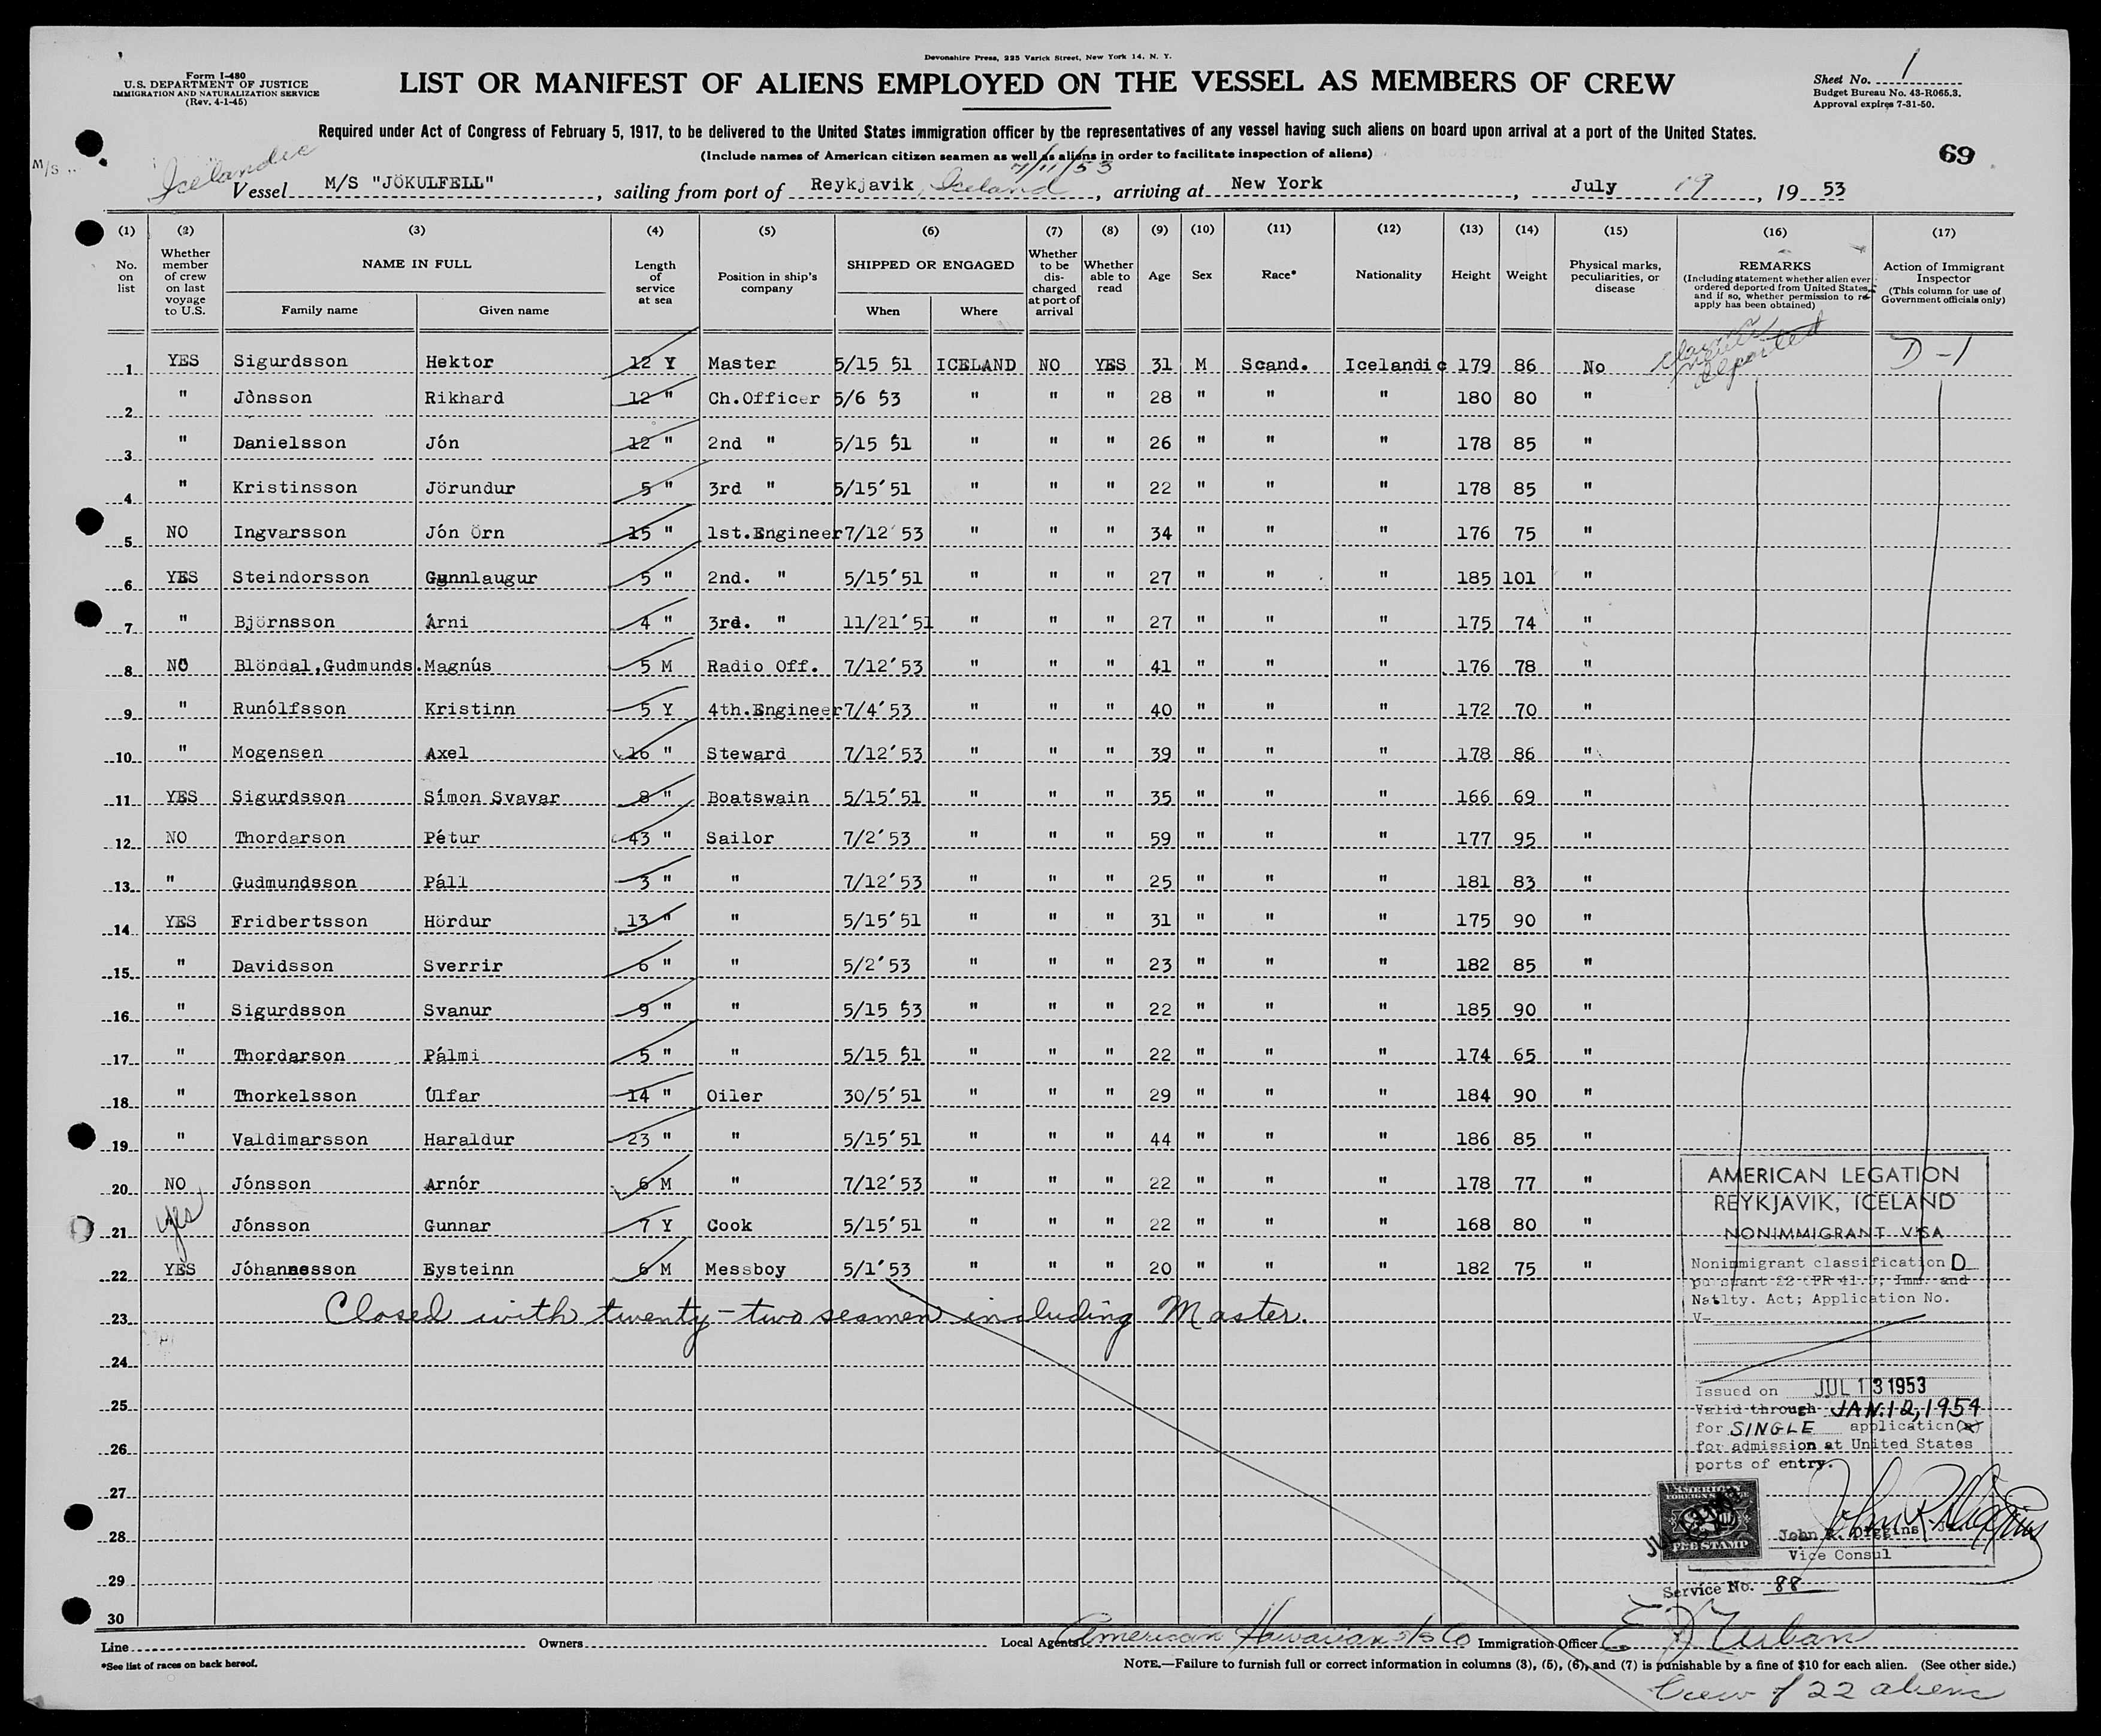 Devonshire Press, 225 Varick Street, New York 14, N. Y.
Form I-480
U.S. DEPARTMENT OF JUSTICE
IMMIGRATION AND NATURALIZATION SERVICE
(Rev. 4-1-45)
LIST OR MANIFEST OF ALIENS EMPLOYED ON THE VESSEL AS MEMBERS OF CREW
Sheet No. 1
Budget Bureau No. 43-R065.3.
Approval expires 7-31-50.
Required under Act of Congress of February 5, 1917, to be delivered to the United States immigration officer by the representatives of any vessel having such aliens on board upon arrival at a port of the United States.
(Include names of American citizen seamen as well as aliens in order to facilitate inspection of aliens)
69
M/S
Icelandic
7/11/53
Vessel M/S "JÖKULFELL", sailing from port of Reykjavik, Iceland, arriving at New York, July 19, 1953
(1) (2) (3) (4) (5) (6) (7) (8) (9) (10) (11) (12) (13) (14) (15) (16) (17)
No. on list
Whether member of crew on last voyage to U.S.
NAME IN FULL
Family name
Given name
Length of service at sea
Position in ship's company
SHIPPED OR ENGAGED
When
Where
Whether to be discharged at port of arrival
Whether able to read
Age
Sex
Race*
Nationality
Height
Weight
Physical marks, peculiarities, or disease
REMARKS
(Including statement whether alien ever ordered deported from United States, and if so, whether permission to reapply has been obtained)
Action of Immigrant Inspector
(This column for use of Government officials only)
1 YES Sigurdsson Hektor 12 Y Master 5/15 51 ICELAND NO YES 31 M Scand. Icelandic 179 86 No deported D-1
2 " Jónsson Rikhard 12 " Ch.Officer 5/6 53 " " " 28 " " " 180 80 "
3 " Danielsson Jón 12 " 2nd " 5/15 51 " " " 26 " " " 178 85 "
4 " Kristinsson Jörundur 5 " 3rd " 5/15'51 " " " 22 " " " 178 85 "
5 NO Ingvarsson Jón Örn 15 " 1st.Engineer 7/12'53 " " " 34 " " " 176 75 "
6 YES Steindorsson Gunnlaugur 5 " 2nd. " 5/15'51 " " " 27 " " " 185 101 "
7 " Björnsson Árni 4 " 3rd. " 11/21'51 " " " 27 " " " 175 74 "
8 NO Blöndal,Gudmunds. Magnús 5 M Radio Off. 7/12'53 " " " 41 " " " 176 78 "
9 " Runólfsson Kristinn 5 Y 4th.Engineer 7/4'53 " " " 40 " " " 172 70 "
10 " Mogensen Axel 16 " Steward 7/12'53 " " " 39 " " " 178 86 "
11 YES Sigurdsson Símon Svavar 8 " Boatswain 5/15'51 " " " 35 " " " 166 69 "
12 NO Thordarson Pétur 43 " Sailor 7/2'53 " " " 59 " " " 177 95 "
13 " Gudmundsson Páll 3 " " 7/12'53 " " " 25 " " " 181 83 "
14 YES Fridbertsson Hördur 13 " " 5/15'51 " " " 31 " " " 175 90 "
15 " Davidsson Sverrir 6 " " 5/2'53 " " " 23 " " " 182 85 "
16 " Sigurdsson Svanur 9 " " 5/15 53 " " " 22 " " " 185 90 "
17 " Thordarson Pálmi 5 " " 5/15 51 " " " 22 " " " 174 65 "
18 " Thorkelsson Úlfar 14 " Oiler 30/5'51 " " " 29 " " " 184 90 "
19 " Valdimarsson Haraldur 23 " " 5/15'51 " " " 44 " " " 186 85 "
20 NO Jónsson Arnór 6 M " 7/12'53 " " " 22 " " " 178 77 "
21 yes Jónsson Gunnar 7 Y Cook 5/15'51 " " " 22 " " " 168 80 "
22 YES Jóhannesson Eysteinn 6 M Messboy 5/1'53 " " " 20 " " " 182 75 "
23 Closed with twenty-two seamen including Master.
24
25
26
27
28
29
30
AMERICAN LEGATION
REYKJAVIK, ICELAND
NONIMMIGRANT VISA
Nonimmigrant classification D
pursuant 22 CFR 41.5; Imm. and
Natlty. Act; Application No.
V-
Issued on JUL 13 1953
Valid through JAN.12,1954
for SINGLE application(s)
for admission at United States
ports of entry.
AMERICAN
FOREIGN SERVICE
FEE STAMP
John R. Diggins Jr.
Vice Consul
Service No. 88
Line Owners Local Agents American Hawaiian S/S Co Immigration Officer E D Urban
*See list of races on back hereof.
NOTE.—Failure to furnish full or correct information in columns (3), (5), (6), and (7) is punishable by a fine of $10 for each alien. (See other side.)
Crew of 22 aliens